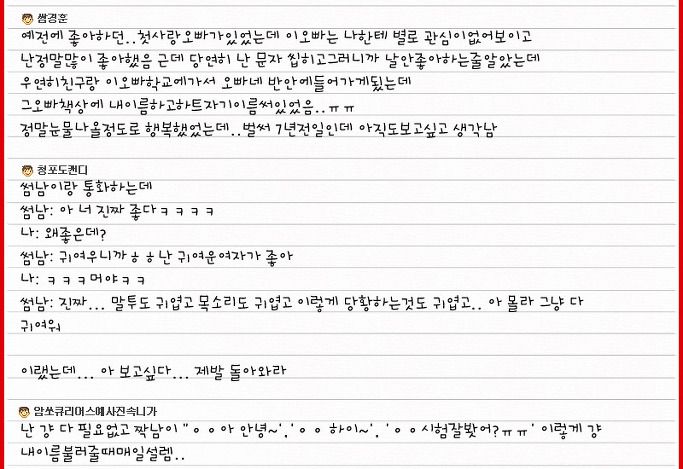 쌈경훈
예전에 좋아하던..첫사랑오빠가있었는데 이오빠는 나한테 별로 관심이없어보이고
난정말많이 좋아했음 근데 당연히 난 문자 씹히고그러니까 날안좋아하는줄알았는데
우연히친구랑 이오빠학교에가서 오빠네 반안에들어가게됬는데
그오빠책상에 내이름하고하트자기이름써있었음..ㅠㅠ
정말눈물나올정도로 행복했었는데..벌써 7년전일인데 아직도보고싶고 생각남
청포도캔디
썸남이랑 통화하는데
썸남: 아 너 진짜 좋다ㅋㅋㅋㅋ
나: 왜좋은데?
썸남: 귀여우니까ㅎㅎ난 귀여운여자가 좋아
나: ㅋㅋㅋ머야ㅋㅋ
썸남: 진짜... 말투도 귀엽고 목소리도 귀엽고 이렇게 당황하는것도 귀엽고.. 아 몰라 그냥 다
귀여워
이랬는데... 아 보고싶다... 제발 돌아와라
암쏘큐리어스예사진속니가
난 걍 다 필요없고 짝남이 "ㅇㅇ아 안녕~','ㅇㅇ 하이~', 'ㅇㅇ시험잘봤어?ㅠㅠ' 이렇게 걍
내이름불러줄때매일설렘..